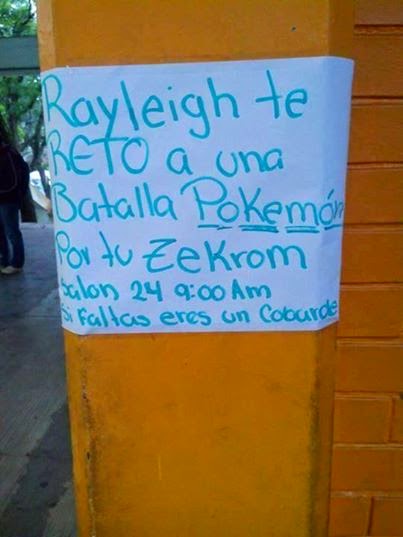 Rayleigh te
RETO a una
Batalla Pokemón
Por tu Zekrom
Salon 24 9:00 Am
Si Faltas eres un Cobarde